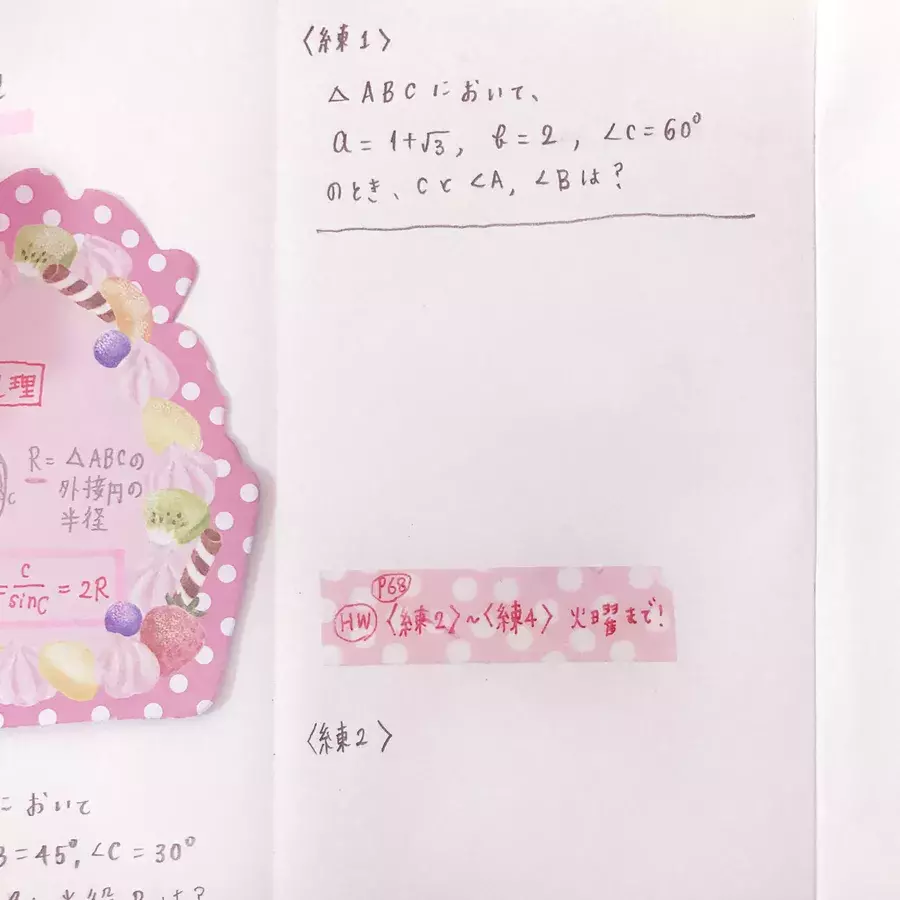 〈練1〉
△ABCにおいて、
a=1+√3, b=2, ∠C=60°
のとき、cと∠A, ∠Bは?
理
R=△ABCの
外接円の
半径
C
=c/sinC=2R
P68
HW 〈練2〉~〈練4〉 火曜まで!
〈練2〉
において
B=45°,∠C=30°
半径Rは?